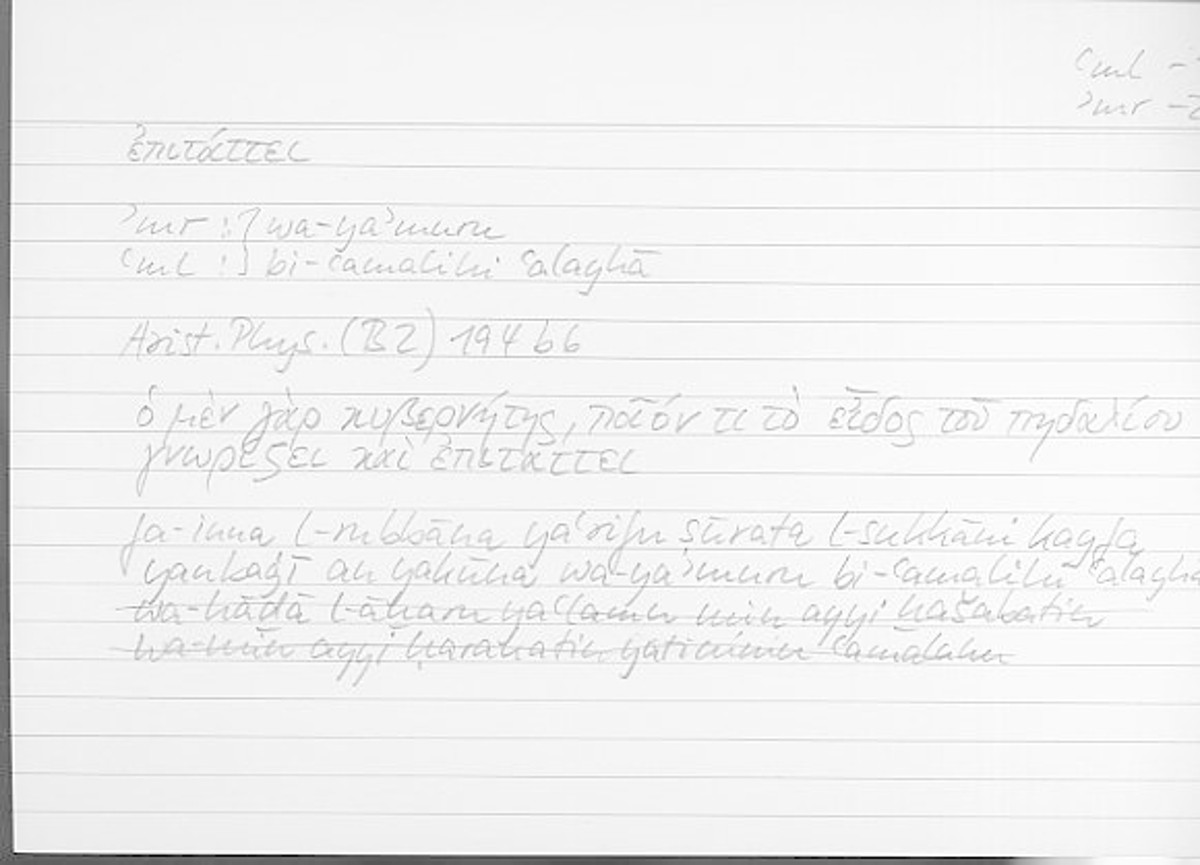 ʿml –
ʾmr –
ἐπιτάττει
ʾmr :} wa-yaʾmuru
ʿml :} bi-ʿamalihi ʿalayhā
Arist. Phys. (B 2) 194 b 6
ὁ μὲν γὰρ κυβερνήτης, ποῖόν τι τὸ εἶδος τοῦ πηδαλίου
γνωρίζει καὶ ἐπιτάττει
fa-inna l-rubbāna yaʿrifu ṣūrata l-sukkāni kayfa
yanbaġī an yakūna wa-yaʾmuru bi-ʿamalihi ʿalayhā
wa-hāḏā l-āḫaru yaʿlamu min ayyi ḫašabatin
wa-min ayyi ḥarakatin ʿamaluhu